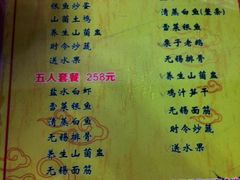 银鱼炒蛋
山菌土鸡
养生山菌盅
时令炒蔬
送水果
五人套餐 258元
盐水白虾
酱菜银鱼
清蒸白鱼
无锡排骨
养生山菌盅
清蒸白鱼(整条)
酱菜银鱼
无锡排骨
养生山菌盅
鸡汁笋干
无锡面筋
时令炒蔬
送水果